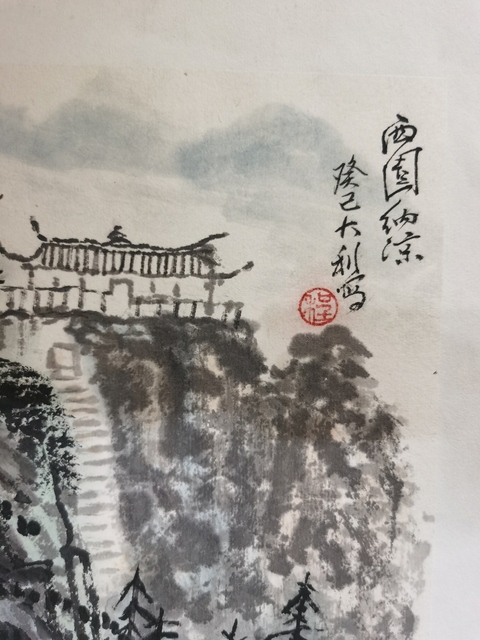 西園纳凉
癸巳大利写
程